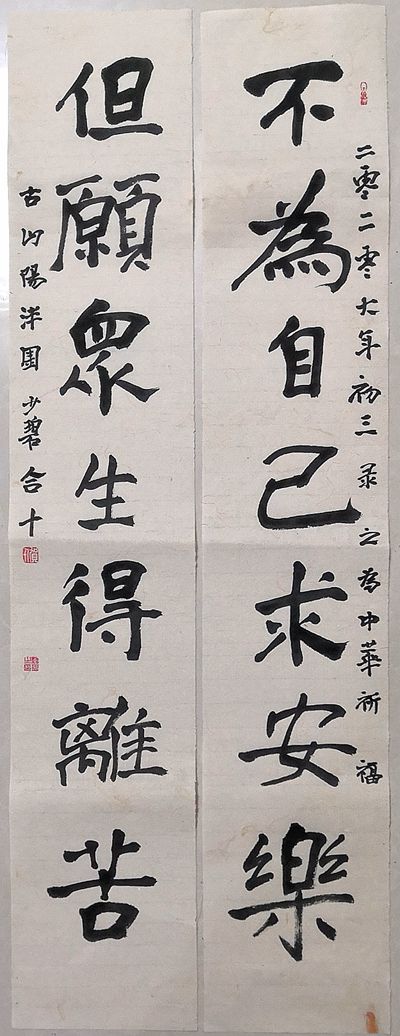 二零二零大年初三录之為中華祈福
不為自己求安樂
但願衆生得離苦
古山陽泮園少碧合十